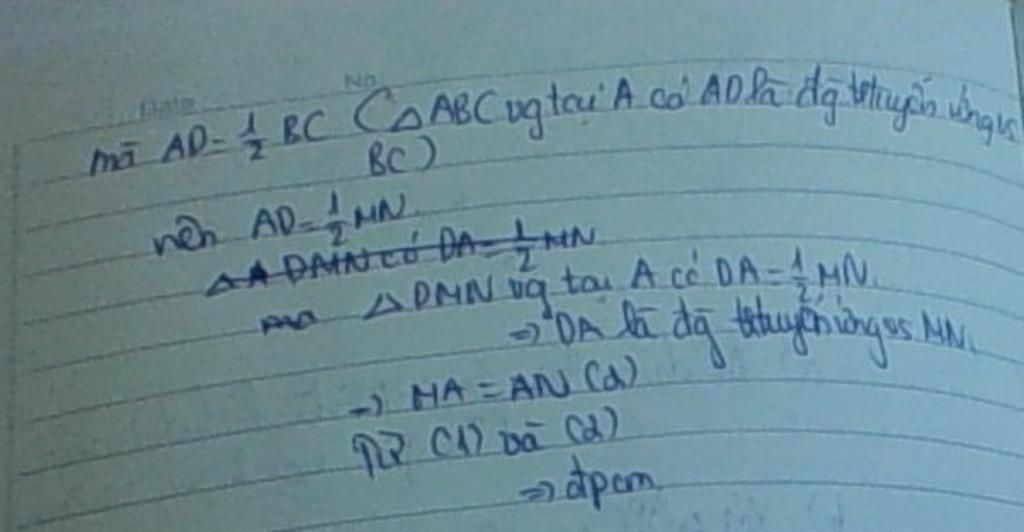 No
mà AD = 1/2 BC (△ABC vg tại A có AD là đg trtruyến ứng vs
BC)
nên AD = 1/2 MN.
△A DMN có DA = 1/2 MN
mà △DMN vg tại A có DA = 1/2 MN.
⇒ DA là đg trtuyến ứng vs MN.
→ MA = AN (2)
Từ (1) và (2)
⇒ đpcm